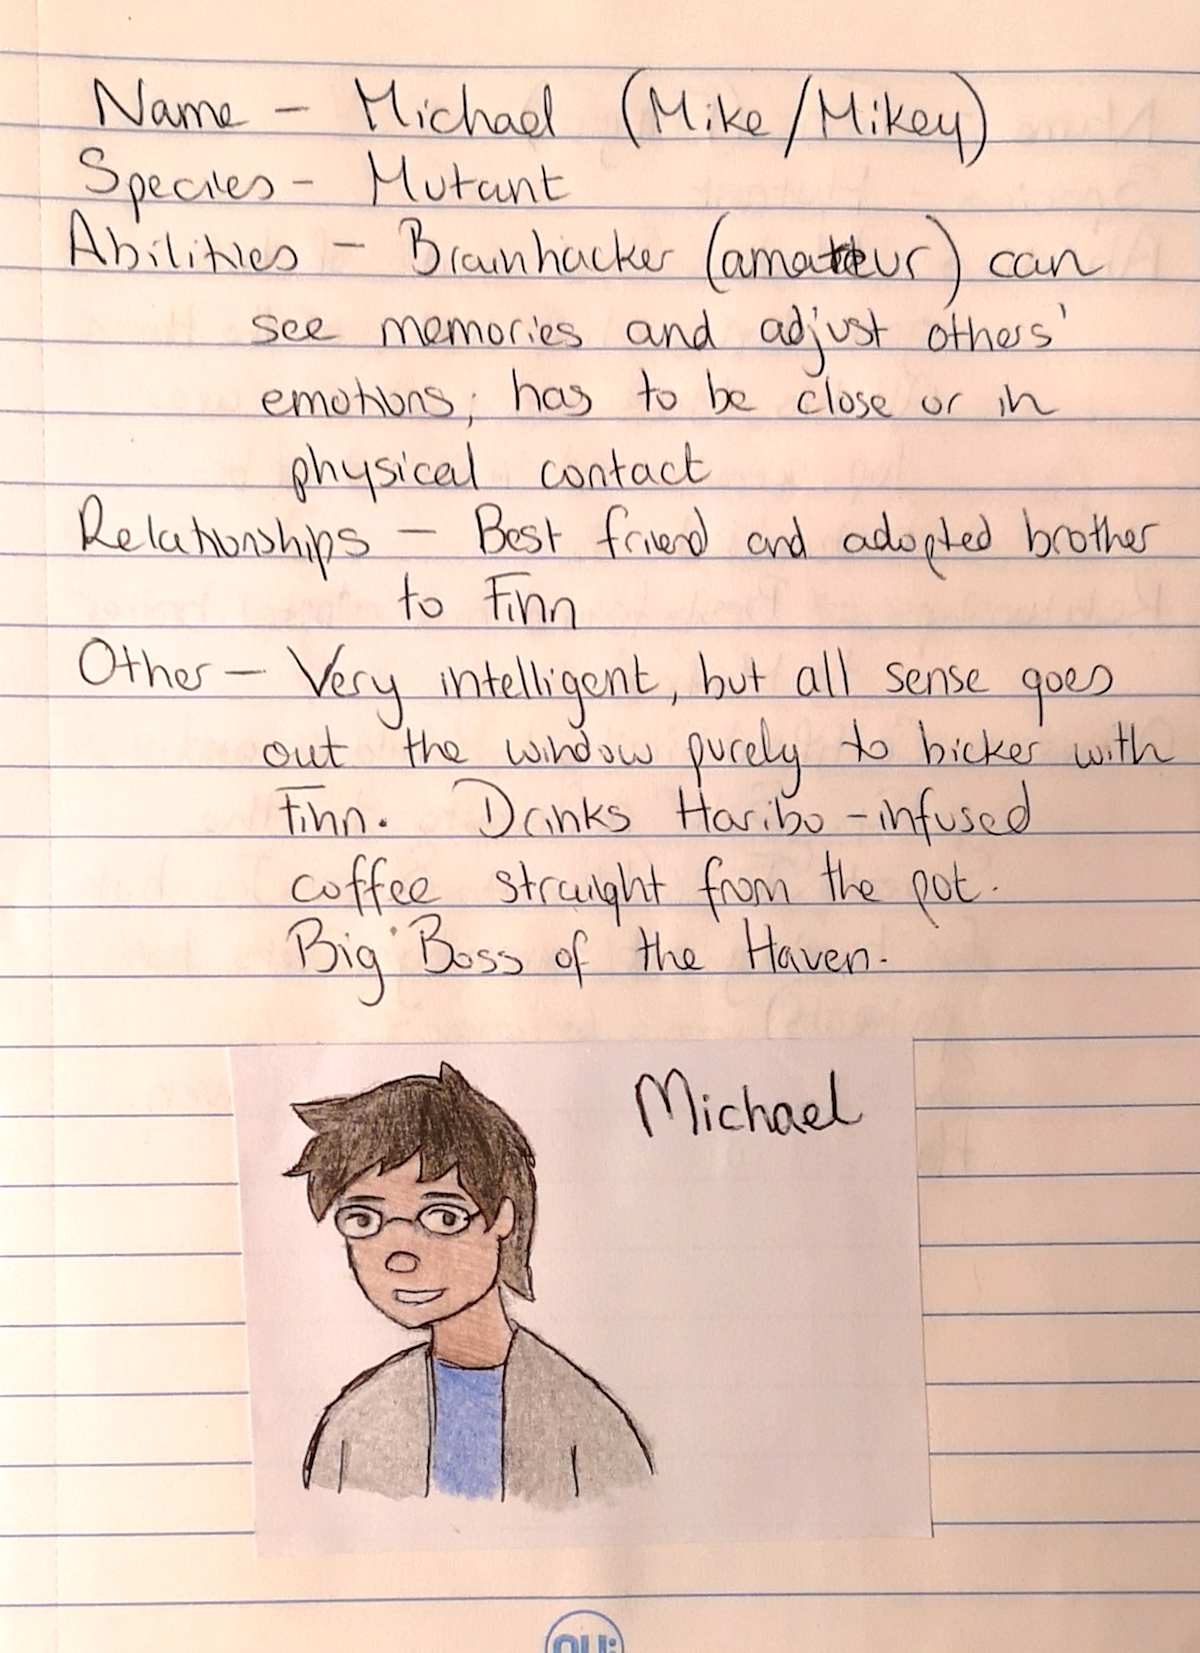 Name - Michael (Mike/Mikey)
Species - Mutant
Abilities - Brainhacker (amateur) can
see memories and adjust others'
emotions; has to be close or in
physical contact
Relationships - Best friend and adopted brother
to Finn
Other - Very intelligent, but all sense goes
out the window purely to bicker with
Finn. Drinks Haribo-infused
coffee straight from the pot.
Big Boss of the Haven.
Michael